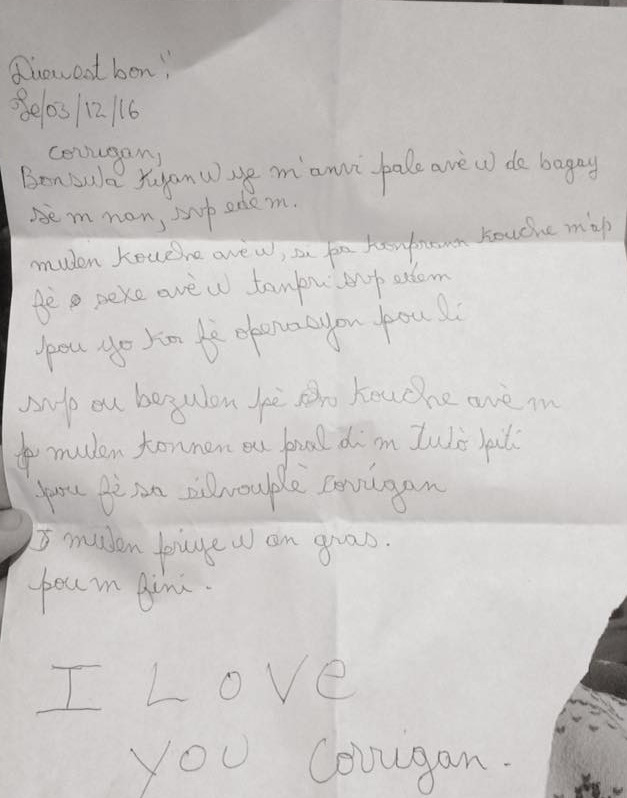 Dieu est bon!!
Le/03/12/16
corrigan,
Bonswa kijan w ye m'anvi pale avè w de bagay
sè m nan, svp ede m.
mwen kouche avè w, si pa konprann kouche m'ap
fè sexe avè w tanpri svp edem
pou yo ka fè operasyon pou li
svp ou bezwen pè kouche avè m
mwen konnen ou pral di m twò piti
pou fè sa silvouplè corrigan
mwen priye w an gras.
pou m fini.
I LOVE
YOU Corrigan.